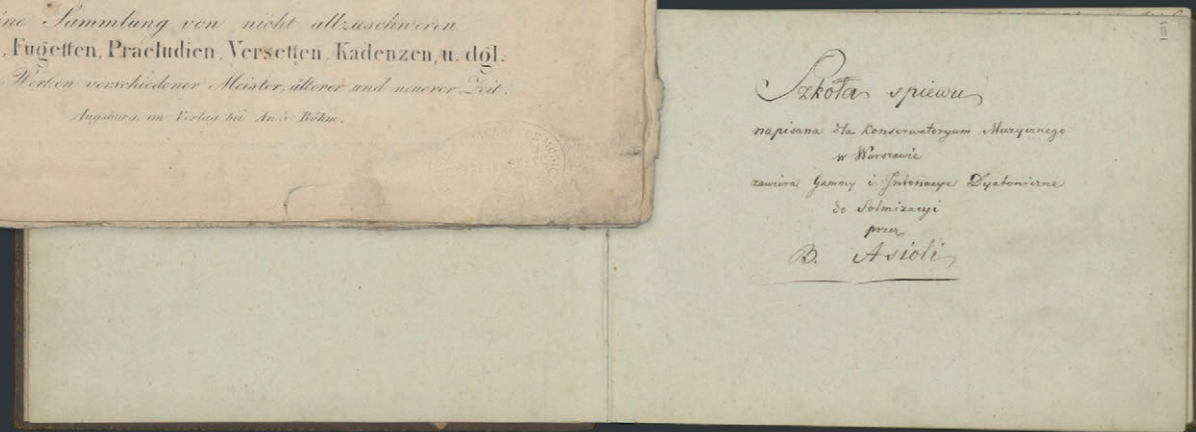 ine Sammlung von nicht allzuschweren
, Fugetten, Praeludien, Versetten, Kadenzen, u. dgl.
Werken verschiedener Meister, älterer und neuerer Zeit.
Augsburg, im Verlag bei Böhm.
Szkoła spiewu
napisana dla Konserwatoryum Muzycznego
w Warszawie
zawiera Gammy i Intonacye Dyatoniczne
do Solmizacyi
przez
B. Asioli